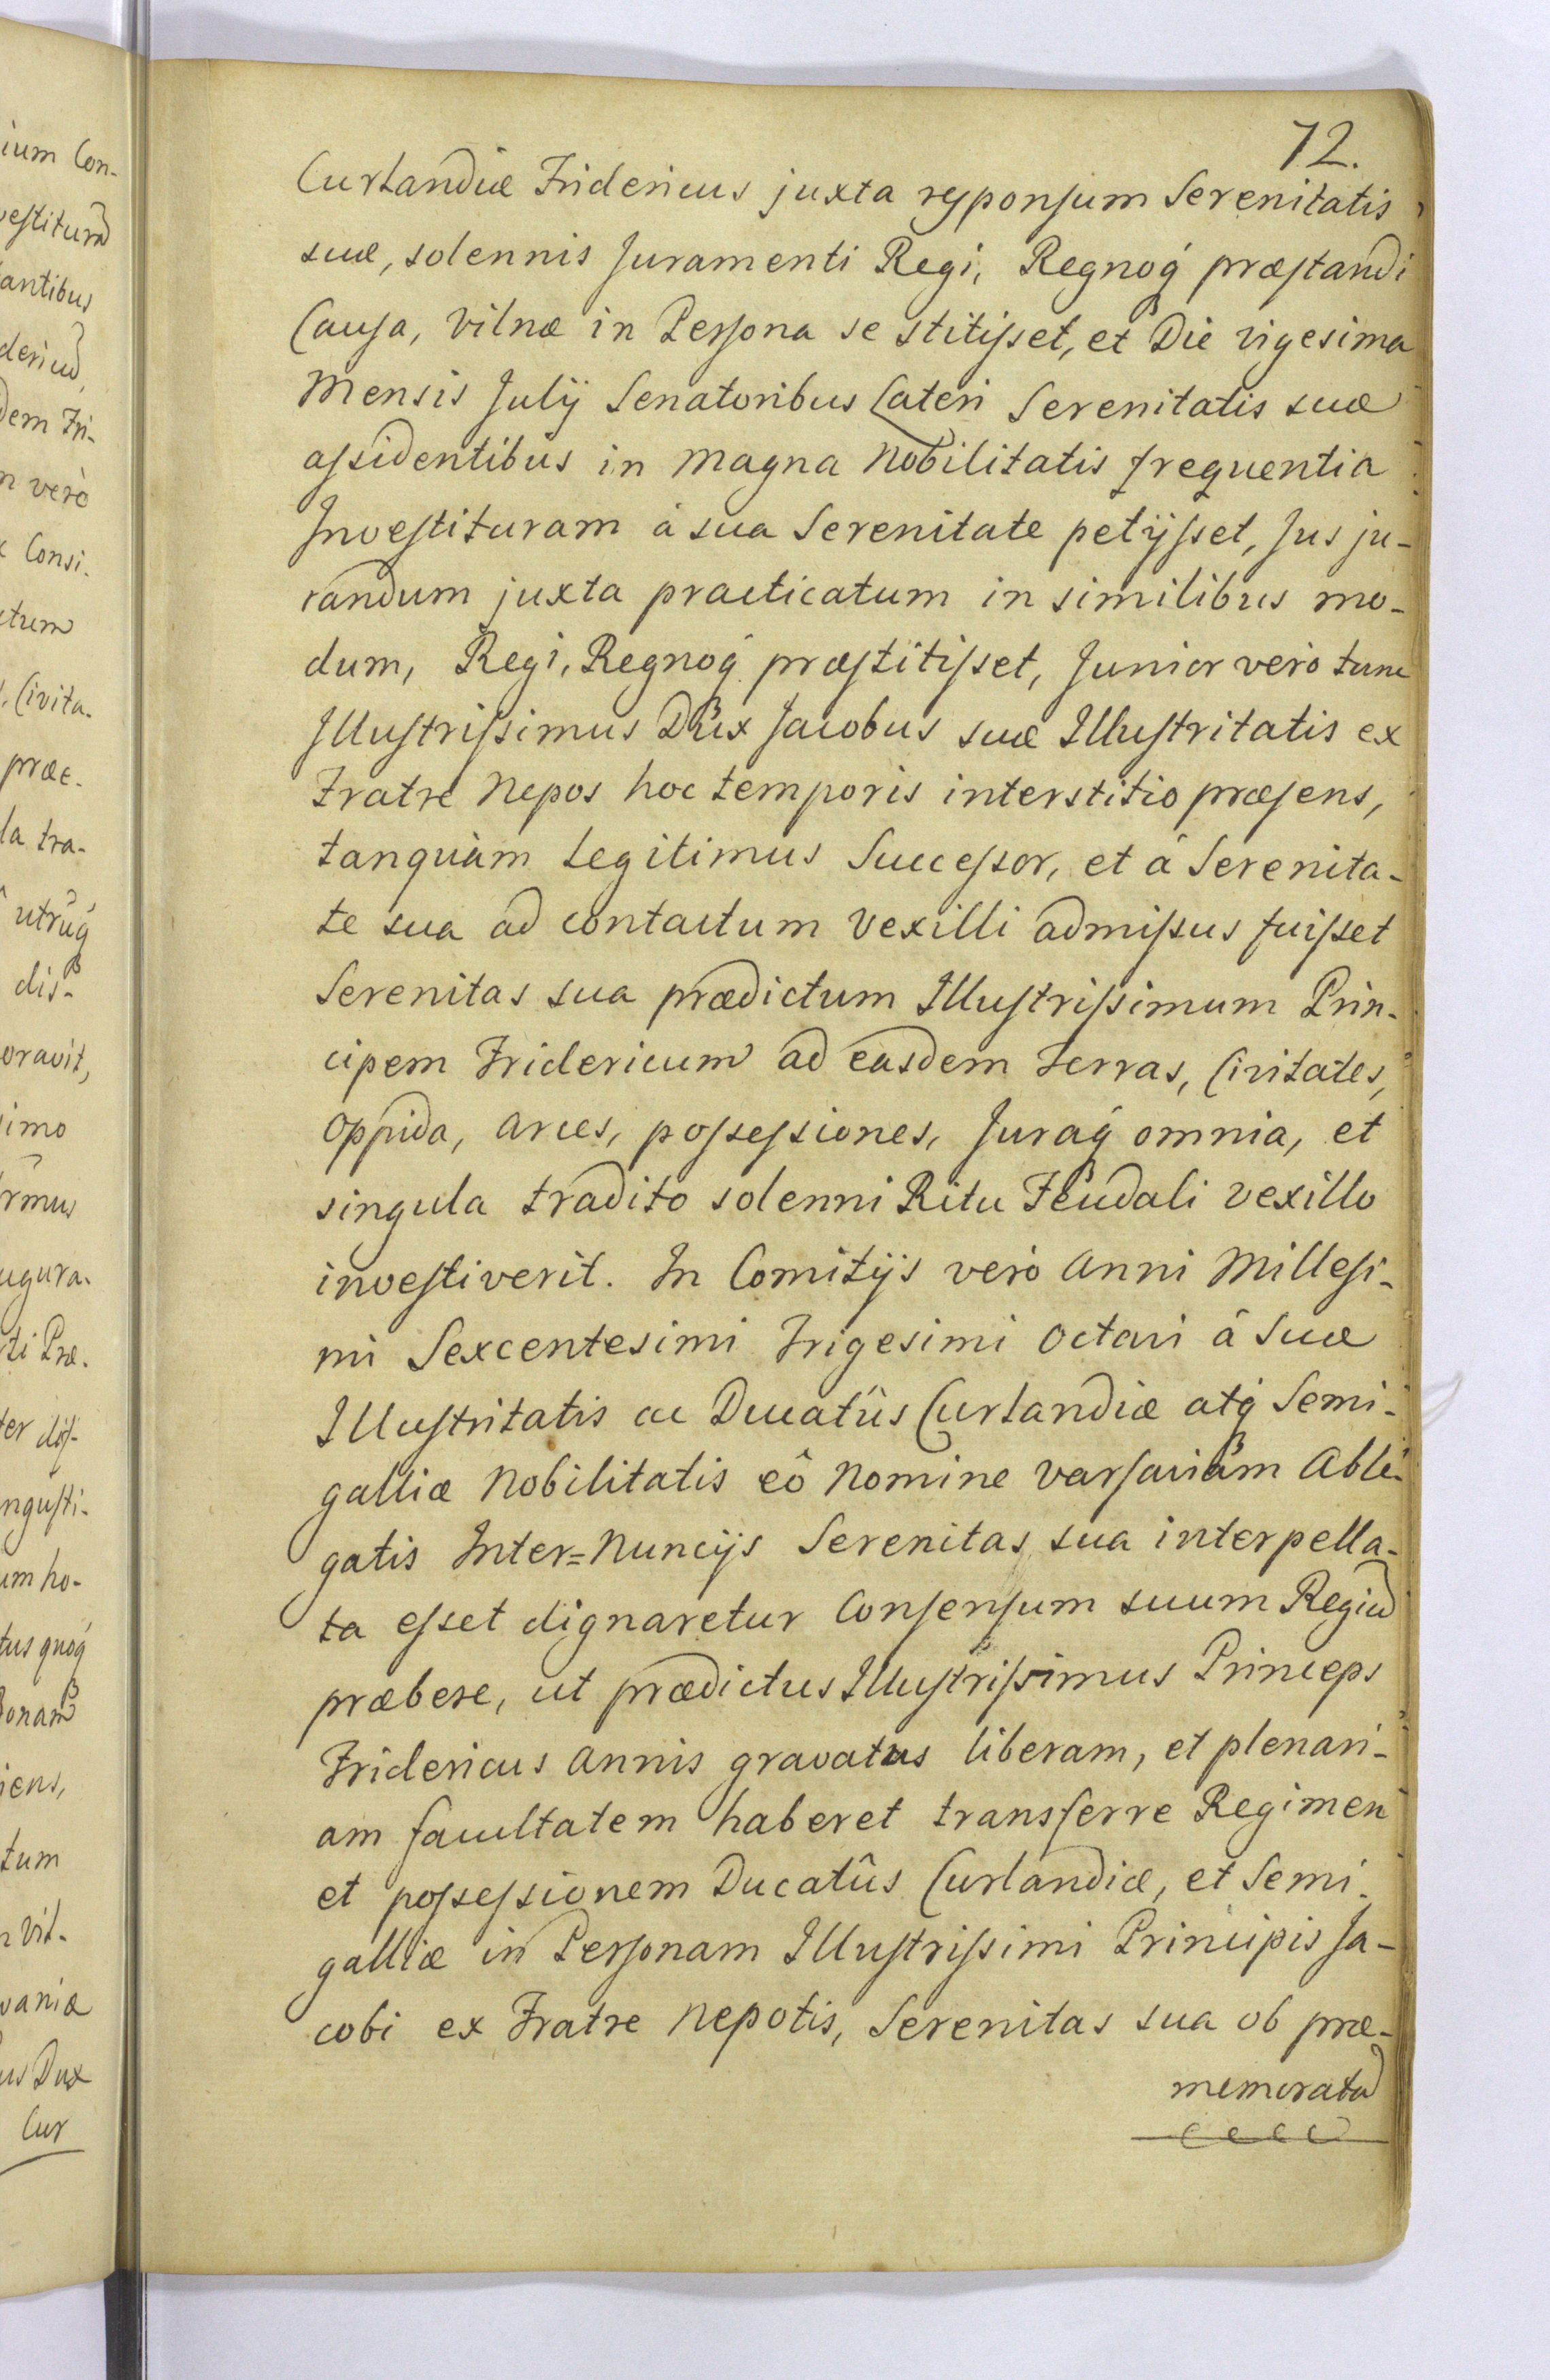 72.
Curlandiæ Fridericus juxta responsum Serenitatis
suæ, solennis Juramenti Regi, Regnoq́ præstandi
Causa, Vilnæ in Persona se stitisset, et Die vigesima
Mensis Julij Senatoribus Lateri Serenitatis suæ
assidentibus in magna Nobilitatis frequentia
Investituram á sua Serenitate petijsset, Jus ju-
randum juxta practicatum in similibus mo-
dum, Regi, Regnoq́ præstitisset, Junior verò tunc
Illustrissimus Dux Jacobus suæ Illustritatis ex
Fratre Nepos hoc temporis interstitio præsens,
tanquàm Legitimus Successor, et á Serenita-
te sua ad contactum Vexilli admissus fuisset
Serenitas sua prædictum Illustrissimum Prin-
cipem Fridericum ad easdem Terras, Civitates,
Oppida, Arces, possessiones, Juraq́ omnia, et
singula tradito solenni Ritu Feudali vexillo
investiverit. In Comitijs verò Anni Millesi-
mi Sexcentesimi Trigesimi Octavi á Suæ
Illustritatis ac Ducatûs Curlandiæ atq́ Semi-
galliæ Nobilitatis eô Nomine Varsaviam Able-
gatis Inter=Nuncijs Serenitas sua interpella-
ta esset dignaretur Consensum suum Regiū
præbere, ut prædictus Illustrissimus Princeps
Fridericus Annis gravatus liberam, et plenari-
am facultatem haberet transferre Regimen
et possessionem Ducatûs Curlandiæ, et Semi-
galliæ in Personam Illustrissimi Principis Ja-
cobi ex Fratre Nepotis, Serenitas sua ob præ-
memoratā
ium Con-
vestiturā
antibus
dericū,
dem Fri-
n verò
Consi-
ctum
Civita-
præe-
la tra-
utrūq́
dis-
oravit,
imo
ugura-
ti Præ-
ter dis-
ngusti-
um ho-
tus quoq́
onam
iens,
tum
n Vil-
vaniæ
us Dux
Cur